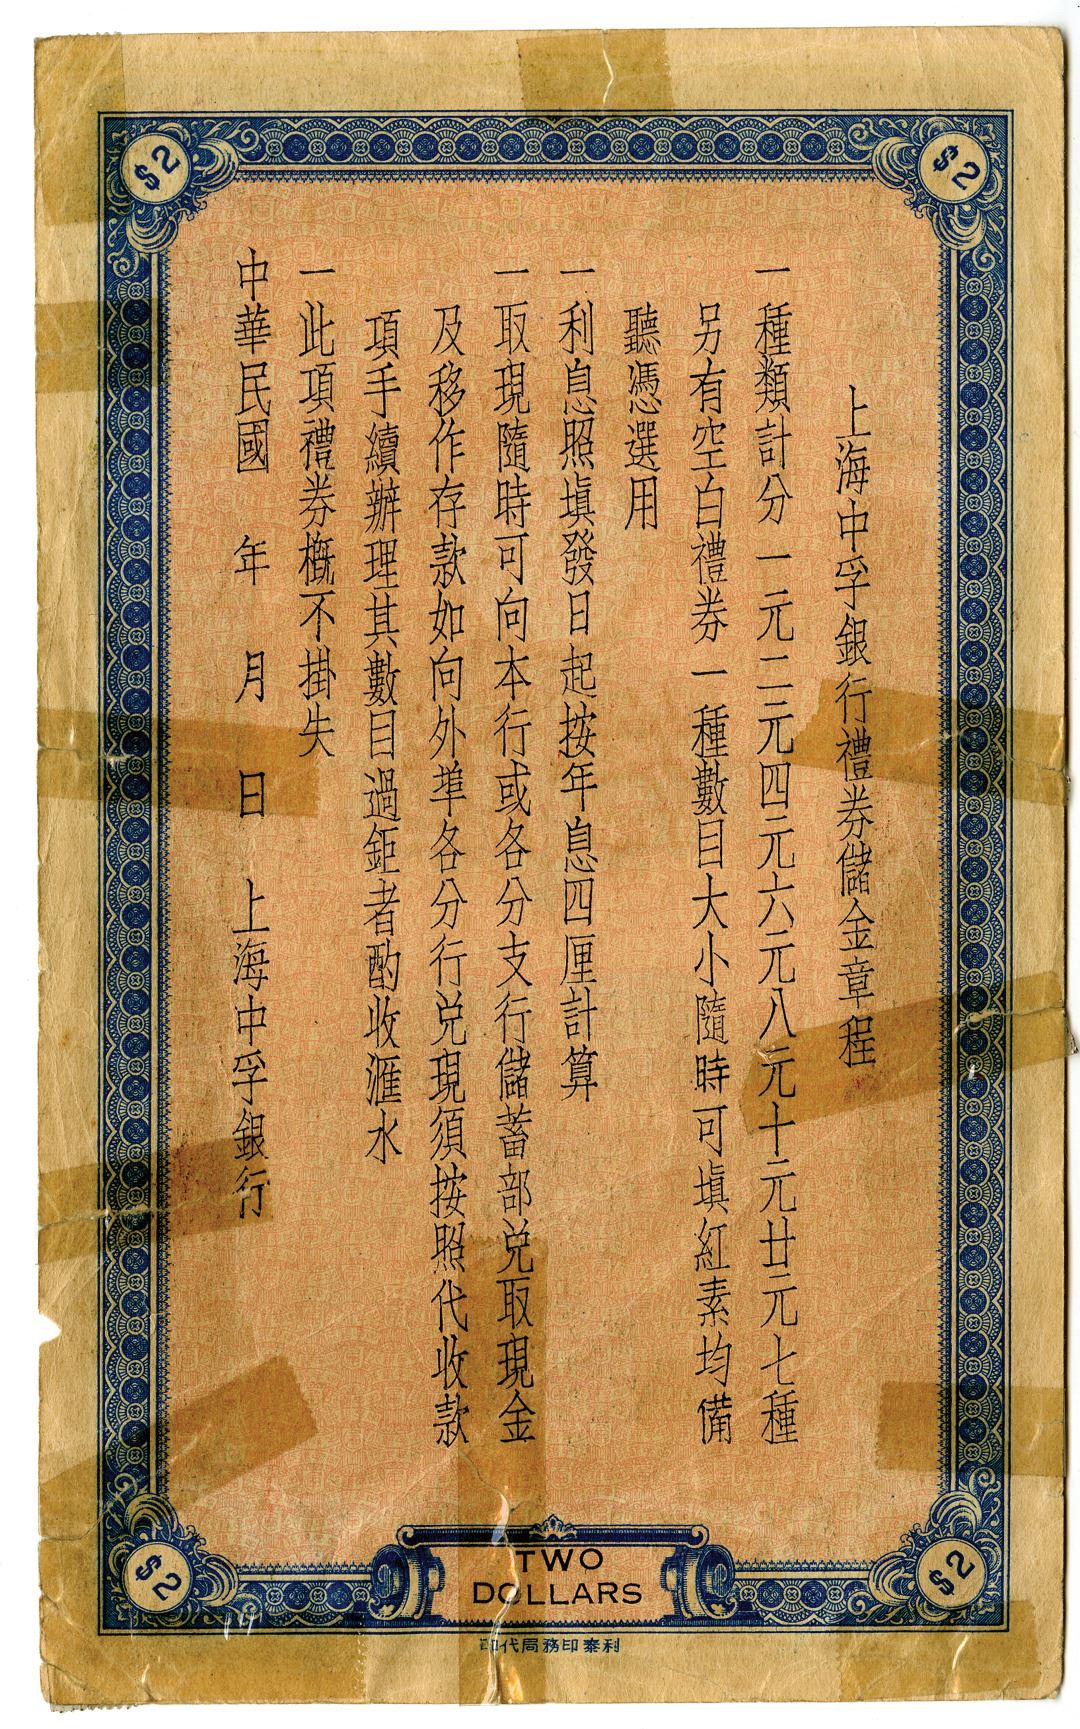 $2
$2
上海中孚銀行禮券儲金章程
一種類計分一元二元四元六元八元十元廿元七種
另有空白禮券一種數目大小隨時可塡紅素均備
聽憑選用
一利息照塡發日起按年息四厘計算
一取現隨時可向本行或各分支行儲蓄部兌取現金
及移作存款如向外埠各分行兌現須按照代收款
項手續辦理其數目過鉅者酌收滙水
一此項禮券概不掛失
中華民國 年 月 日 上海中孚銀行
$2
TWO
DOLLARS
$2
利泰印務局代印